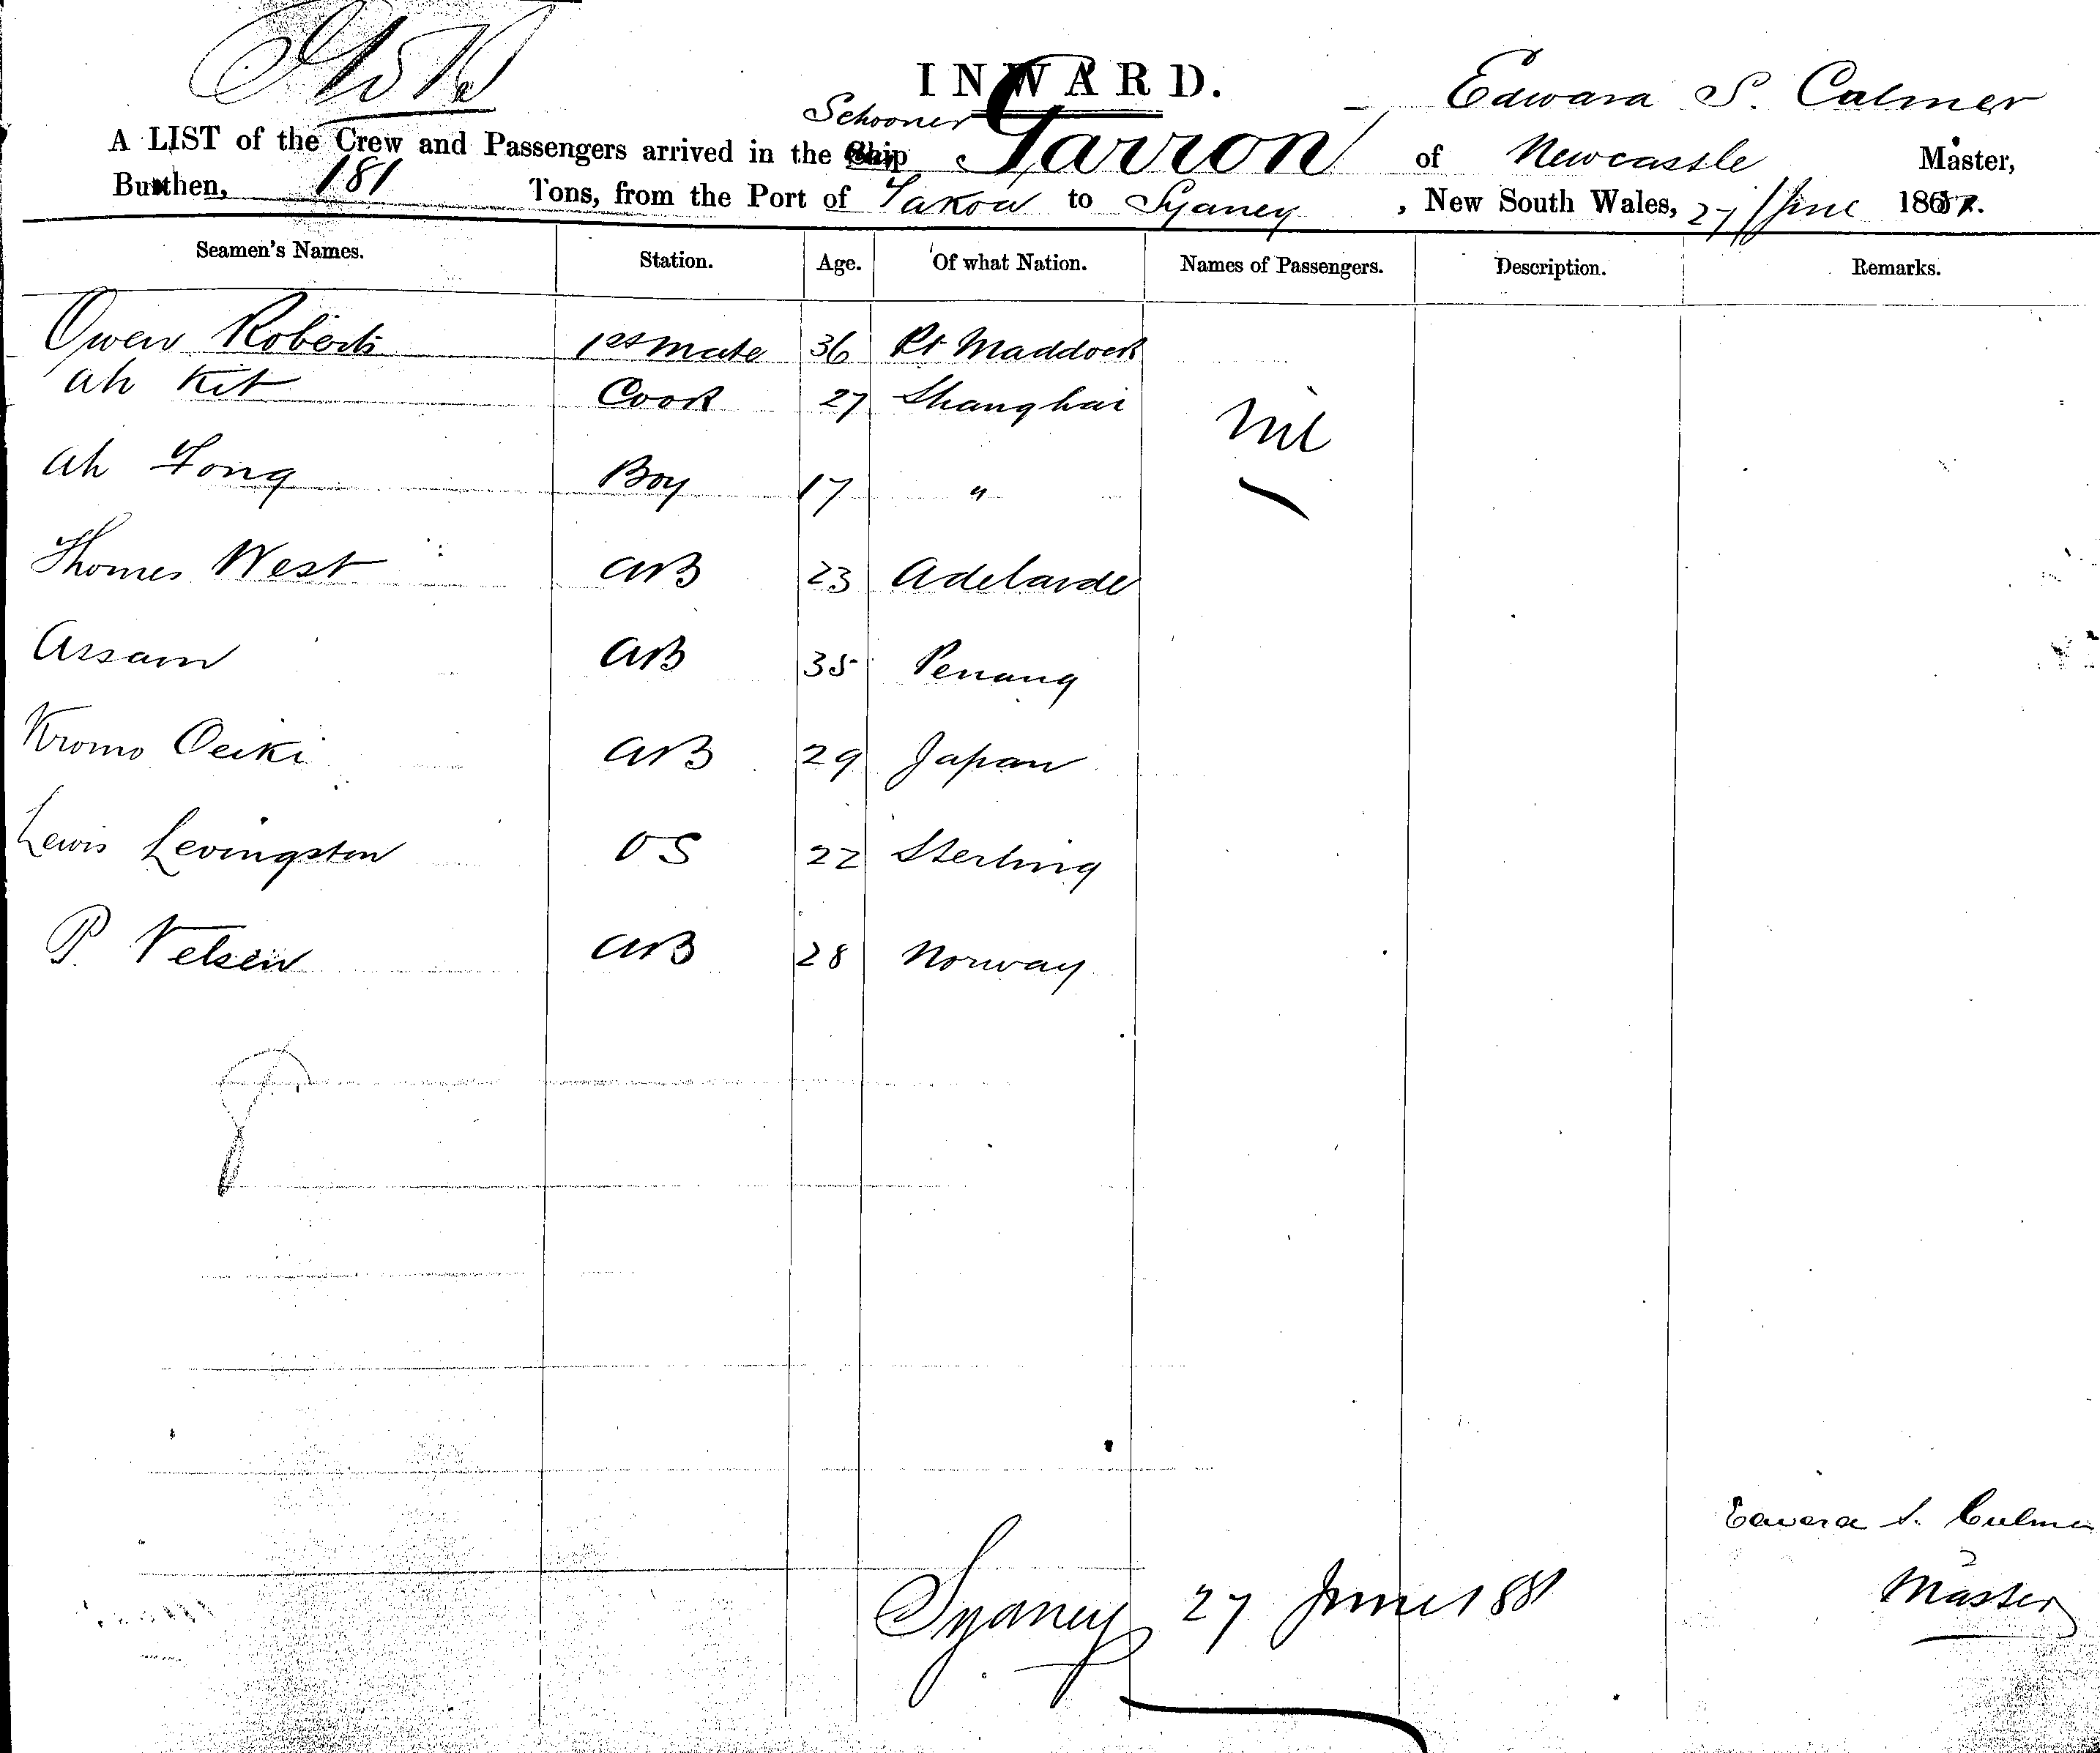 INWARD.
Schooner Edward S. Calmer
A LIST of the Crew and Passengers arrived in the Ship Garron of Newcastle Master,
Burthen, 181 Tons, from the Port of Takow to Sydney , New South Wales, 27/June 1881.
Seamen's Names. Station. Age. Of what Nation. Names of Passengers. Description. Remarks.
Owen Roberts 1st Mate 36 Pt Maddock
Ah Kit Cook 27 Shanghai Nil
Ah Fong Boy 17 "
Thomas West AB 23 Adelaide
Assam AB 35 Penang
Kromo Oeiki AB 29 Japan
Lewis Levingston OS 22 Sterling
P. Nelsen AB 28 Norway
Edward S. Calmer
Master
Sydney 27 June 1881